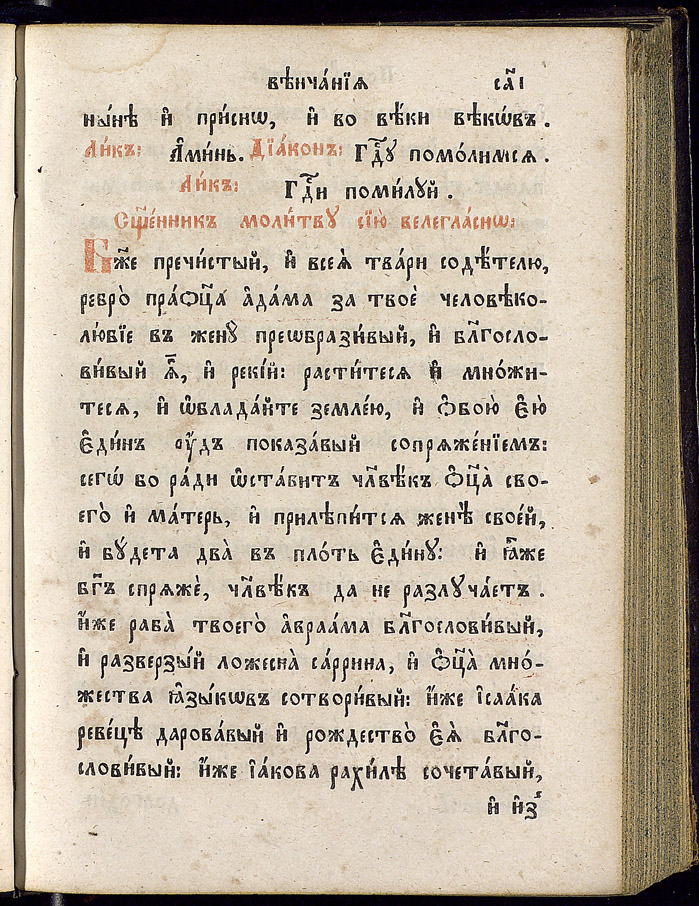 вѣнча́нїѧ са҃і
ны́нѣ и҆ при́снѡ, и҆ во вѣ́ки вѣкѡ́въ.
Ли́къ: А҆ми́нь. Дїа́конъ: Гдⷭ҇ꙋ помо́лимсѧ.
Ли́къ: Гдⷭ҇и поми́лꙋй.
Сщ҃е́нникъ моли́твꙋ сїю̀ велегла́снѡ:
Бж҃е пречи́стый, и҆ всеѧ̀ тва́ри содѣ́телю,
ребро̀ пра́ѻц҃а а҆да́ма за твоѐ человѣко-
лю́бїе въ женꙋ̀ преѡбрази́вый, и҆ блг҃осло-
ви́вый ѧ҆̀, и҆ реки́й: расти́тесѧ и҆ мно́жи-
тесѧ, и҆ ѡ҆блада́йте земле́ю, и҆ ѻ҆бою̀ є҆ю̀
є҆ди́нъ ᲂу҆́дъ показа́вый сопрѧже́нїемъ:
сегѡ̀ бо ра́ди ѡ҆ста́витъ чл҃вѣ́къ ѻ҆ц҃а̀ сво-
его̀ и҆ ма́терь, и҆ прилѣпи́тсѧ женѣ̀ свое́й,
и҆ бꙋ́дета два̀ въ пло́ть є҆ди́нꙋ: и҆ ꙗ҆̀же
бг҃ъ спрѧжѐ, чл҃вѣ́къ да не разлꙋча́етъ.
И҆́же раба̀ твоего̀ а҆враа́ма блг҃ослови́вый,
и҆ разверзы́й ложесна̀ са́ррина, и҆ ѻ҆ц҃а̀ мно́-
жества ꙗ҆зы́кѡвъ сотвори́вый: и҆́же і҆саа́ка
реве́цѣ дарова́вый и҆ рождество̀ є҆ѧ̀ блг҃о-
слови́вый: и҆́же і҆а́кова рахи́лѣ сочета́вый,
и҆ и҆з̾